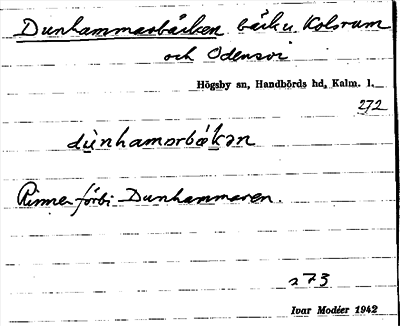 Dunhammarbäcken bäck u. Kolsrum
och Odensvi
Högsby sn, Handbörds hd, Kalm. l.
272
dùnhamarbäkən
Rinner förbi Dunhammaren.
273
Ivar Modéer 1942